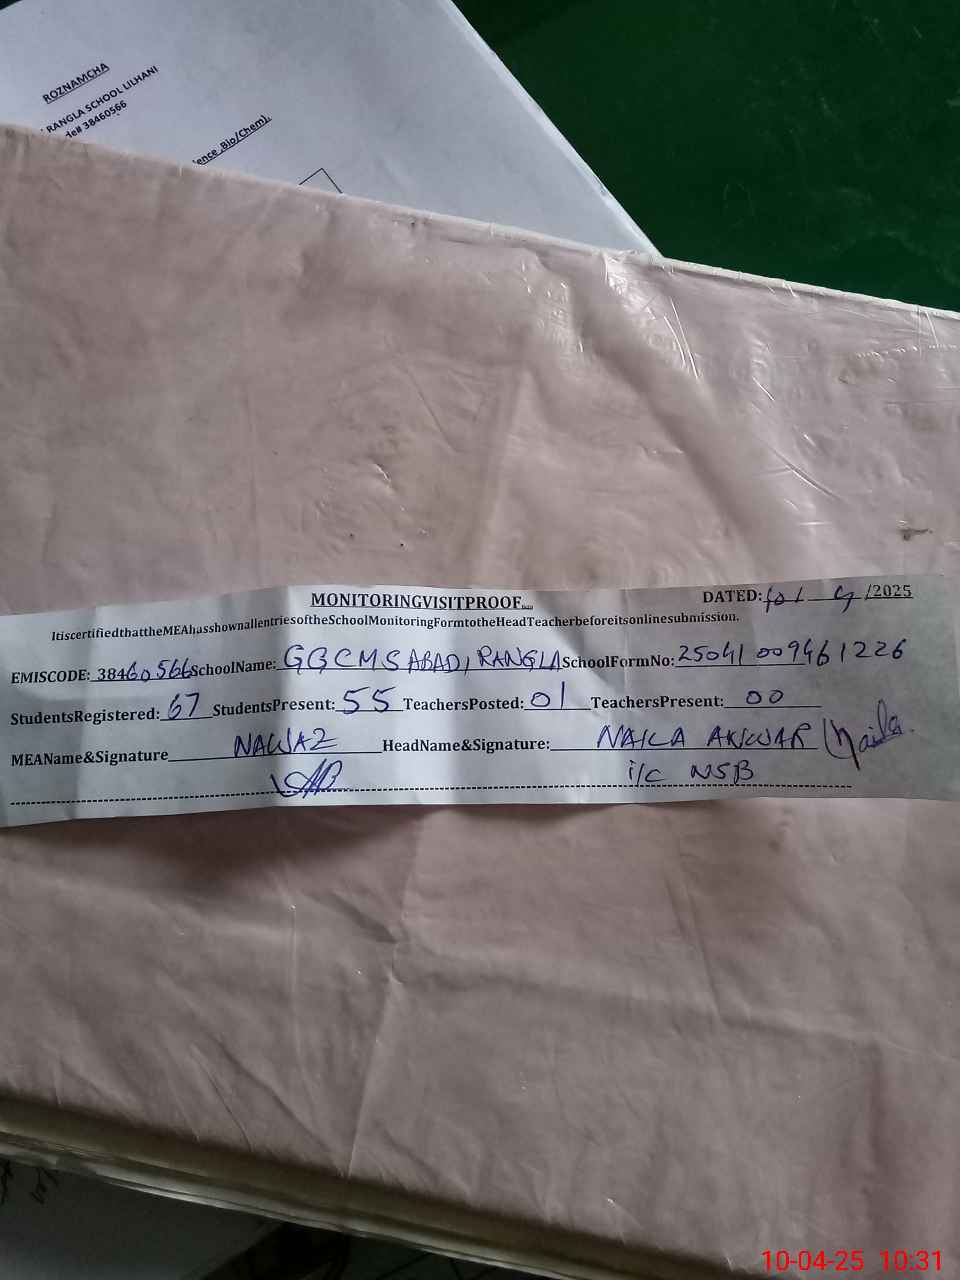 ROZNAMCHA
RANGLA SCHOOL LILHANI
de# 38460566
ence ,Bio/Chem).
MONITORINGVISITPROOF
DATED: /2025
ItiscertifiedthattheMEAhasshownallentriesoftheSchoolMonitoringFormtotheHeadTeacherbeforeitsonlinesubmission.
EMISCODE: 38460566 SchoolName: GGCMS ABADI RANGLA SchoolFormNo: 25041009461226
StudentsRegistered: 67 StudentsPresent: 55 TeachersPosted: 01 TeachersPresent: 00
MEAName&Signature NAWAZ HeadName&Signature: NAILA ANWAR Naila
i/c NSB
10-04-25 10:31